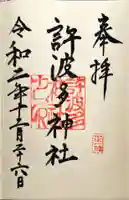 奉拝
許波多神社
令和二年十二月二十六日